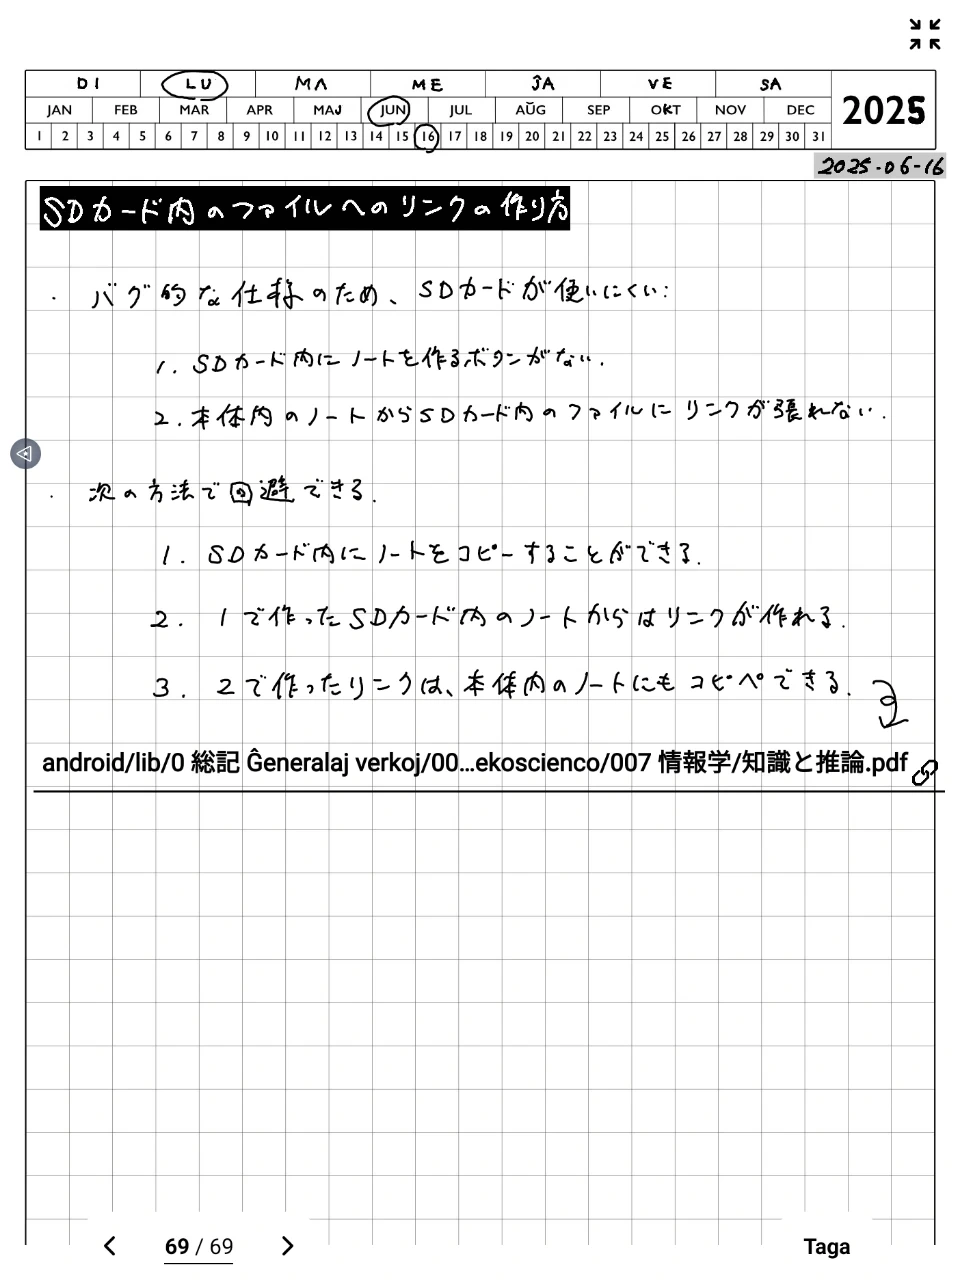 DI LU MA ME ĴA VE SA
JAN FEB MAR APR MAJ JUN JUL AŬG SEP OKT NOV DEC 2025
1 2 3 4 5 6 7 8 9 10 11 12 13 14 15 16 17 18 19 20 21 22 23 24 25 26 27 28 29 30 31
2025-06-16
SDカード内のファイルへのリンクの作り方
・ バグ的な仕様のため、SDカードが使いにくい:
1. SDカード内にノートを作るボタンがない.
2. 本体内のノートからSDカード内のファイルにリンクが張れない.
・ 次の方法で回避できる.
1. SDカード内にノートをコピーすることができる.
2. 1で作ったSDカード内のノートからはリンクが作れる.
3. 2で作ったリンクは、本体内のノートにもコピペできる.
android/lib/0 総記 Ĝeneralaj verkoj/00...ekoscienco/007 情報学/知識と推論.pdf
69 / 69
Taga